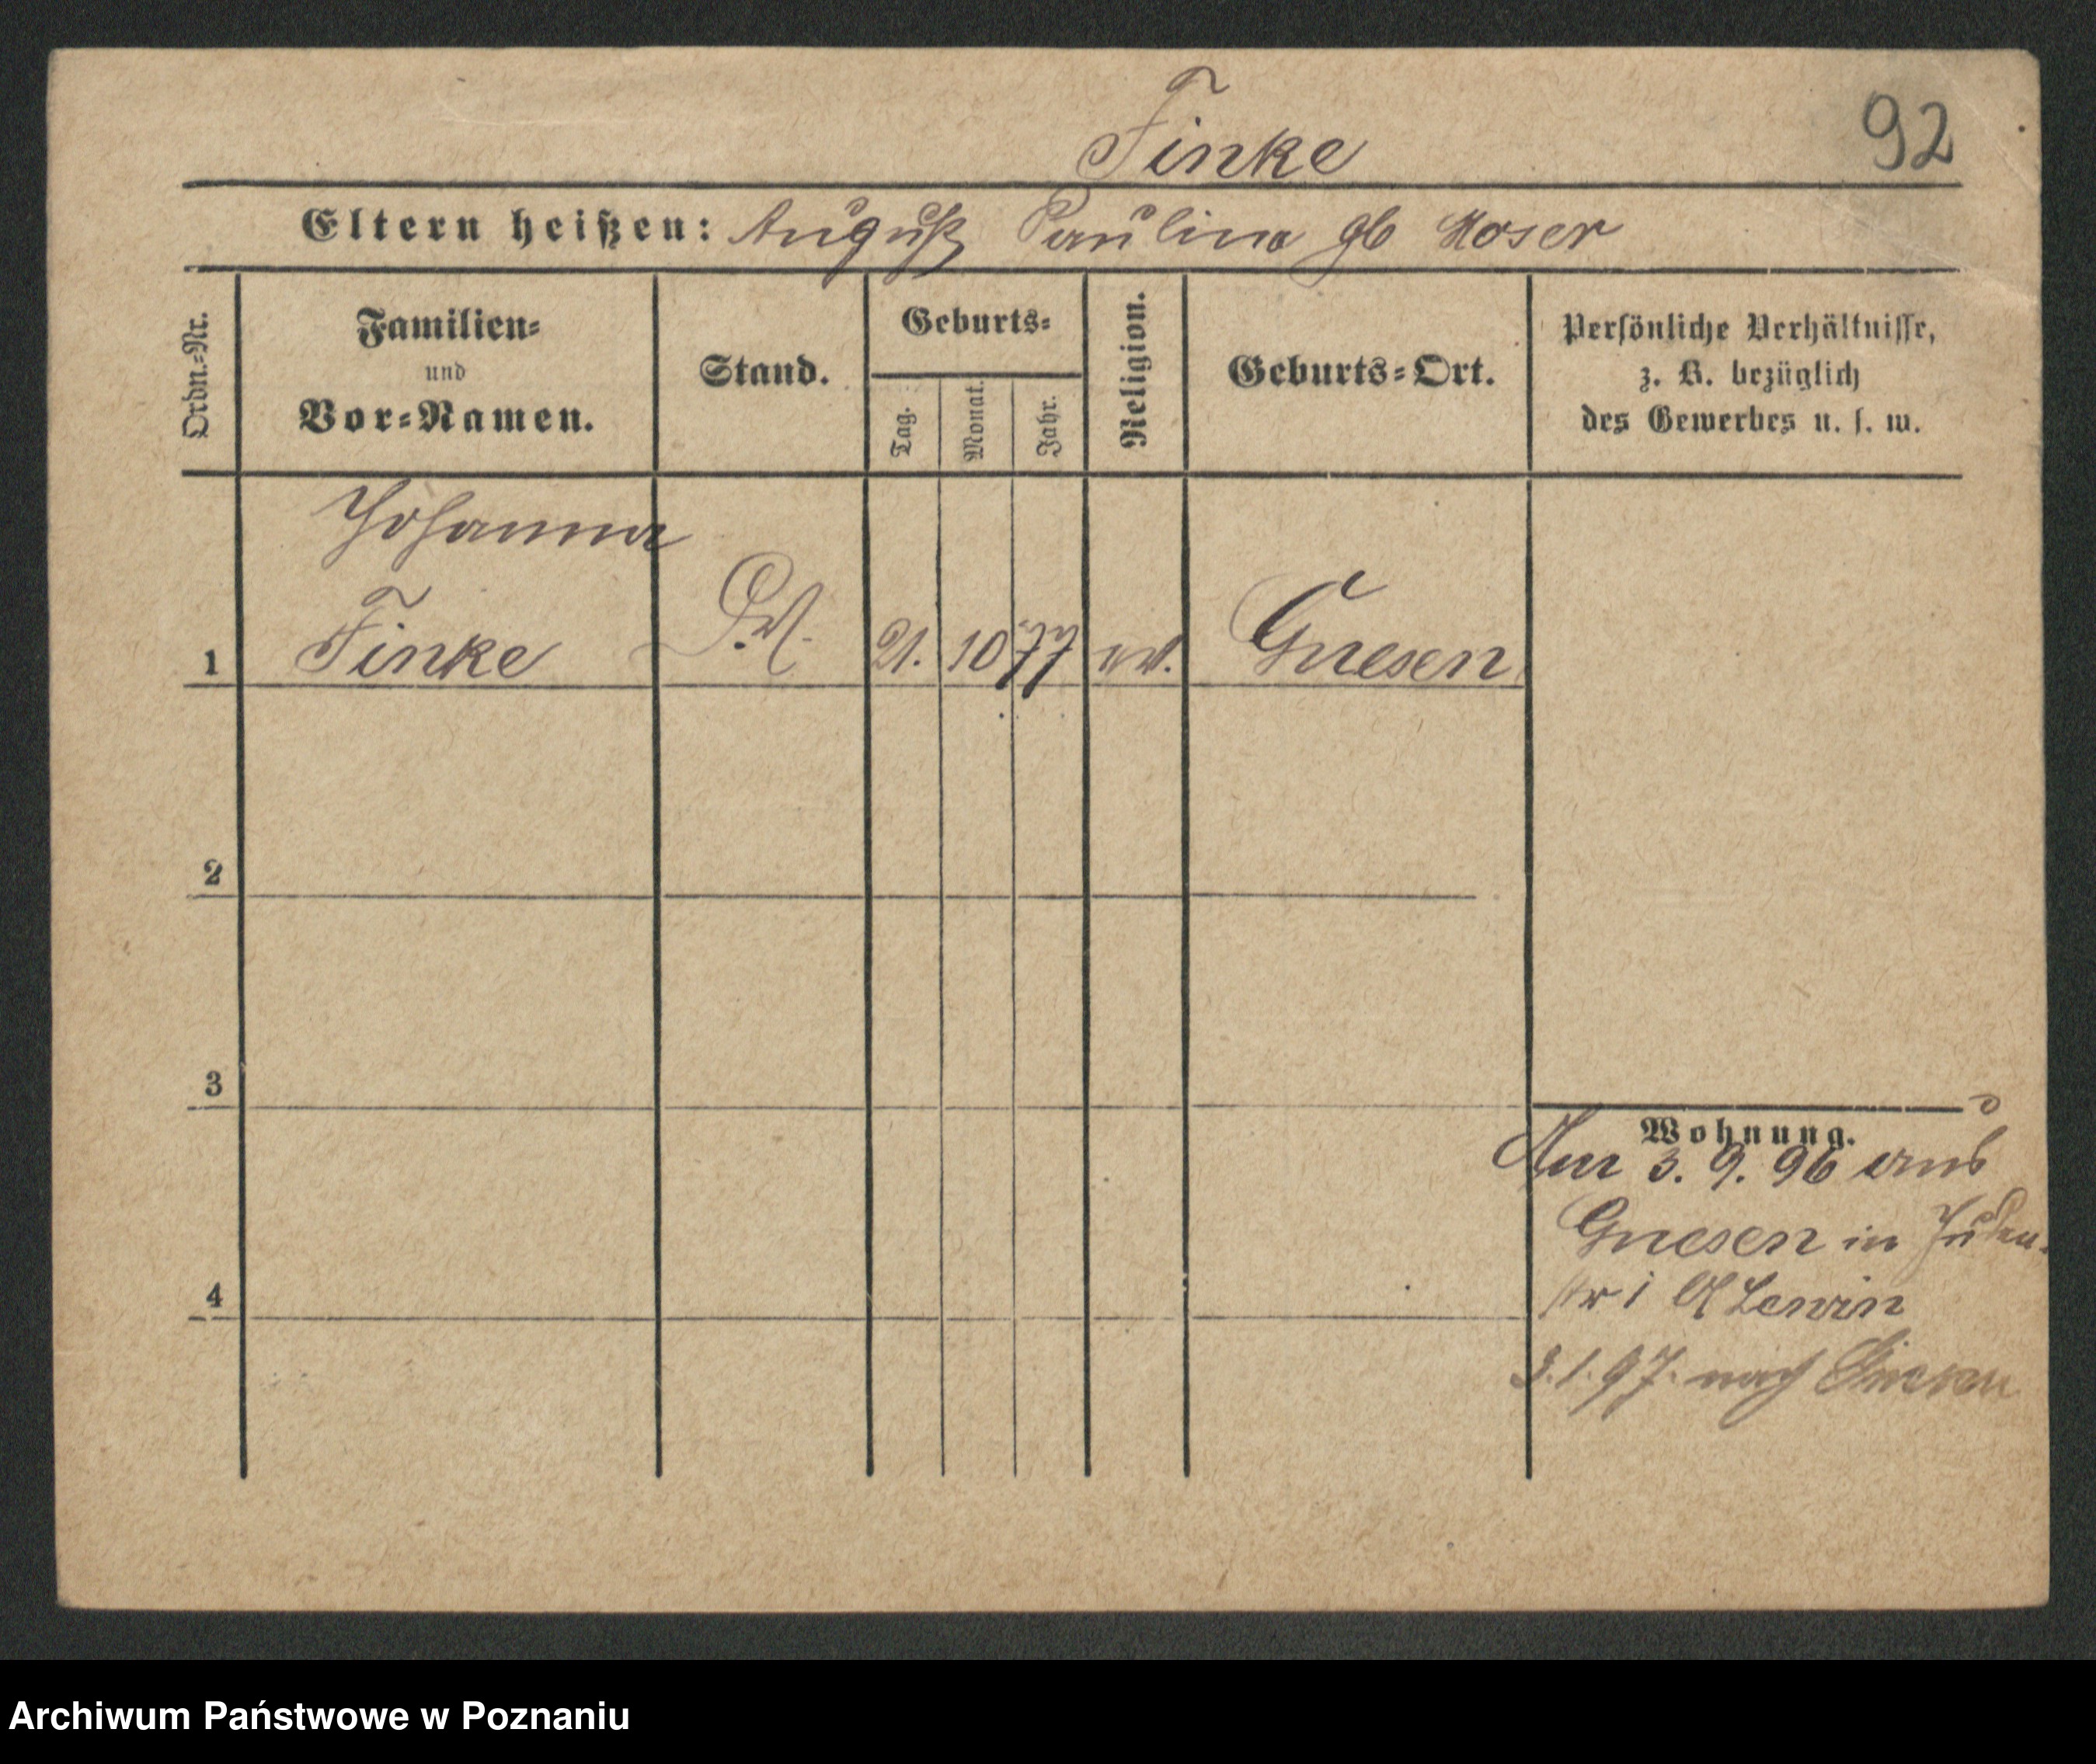 Finke
92
Eltern heißen: August Paulina gb Moser
Ordn.=Nr.
Familien=
und
Vor=Namen.
Stand.
Geburts=
Tag.
Monat.
Jahr.
Religion.
Geburts=Ort.
Persönliche Verhältnisse,
z. B. bezüglich
des Gewerbes u. s. w.
Johanna
1 Finke 21. 10 77 ev. Gnesen
2
3
4
Wohnung.
Am 3. 9. 96 aus
Gnesen in Juden-
str Lewin
3.1.97. nach
Archiwum Państwowe w Poznaniu